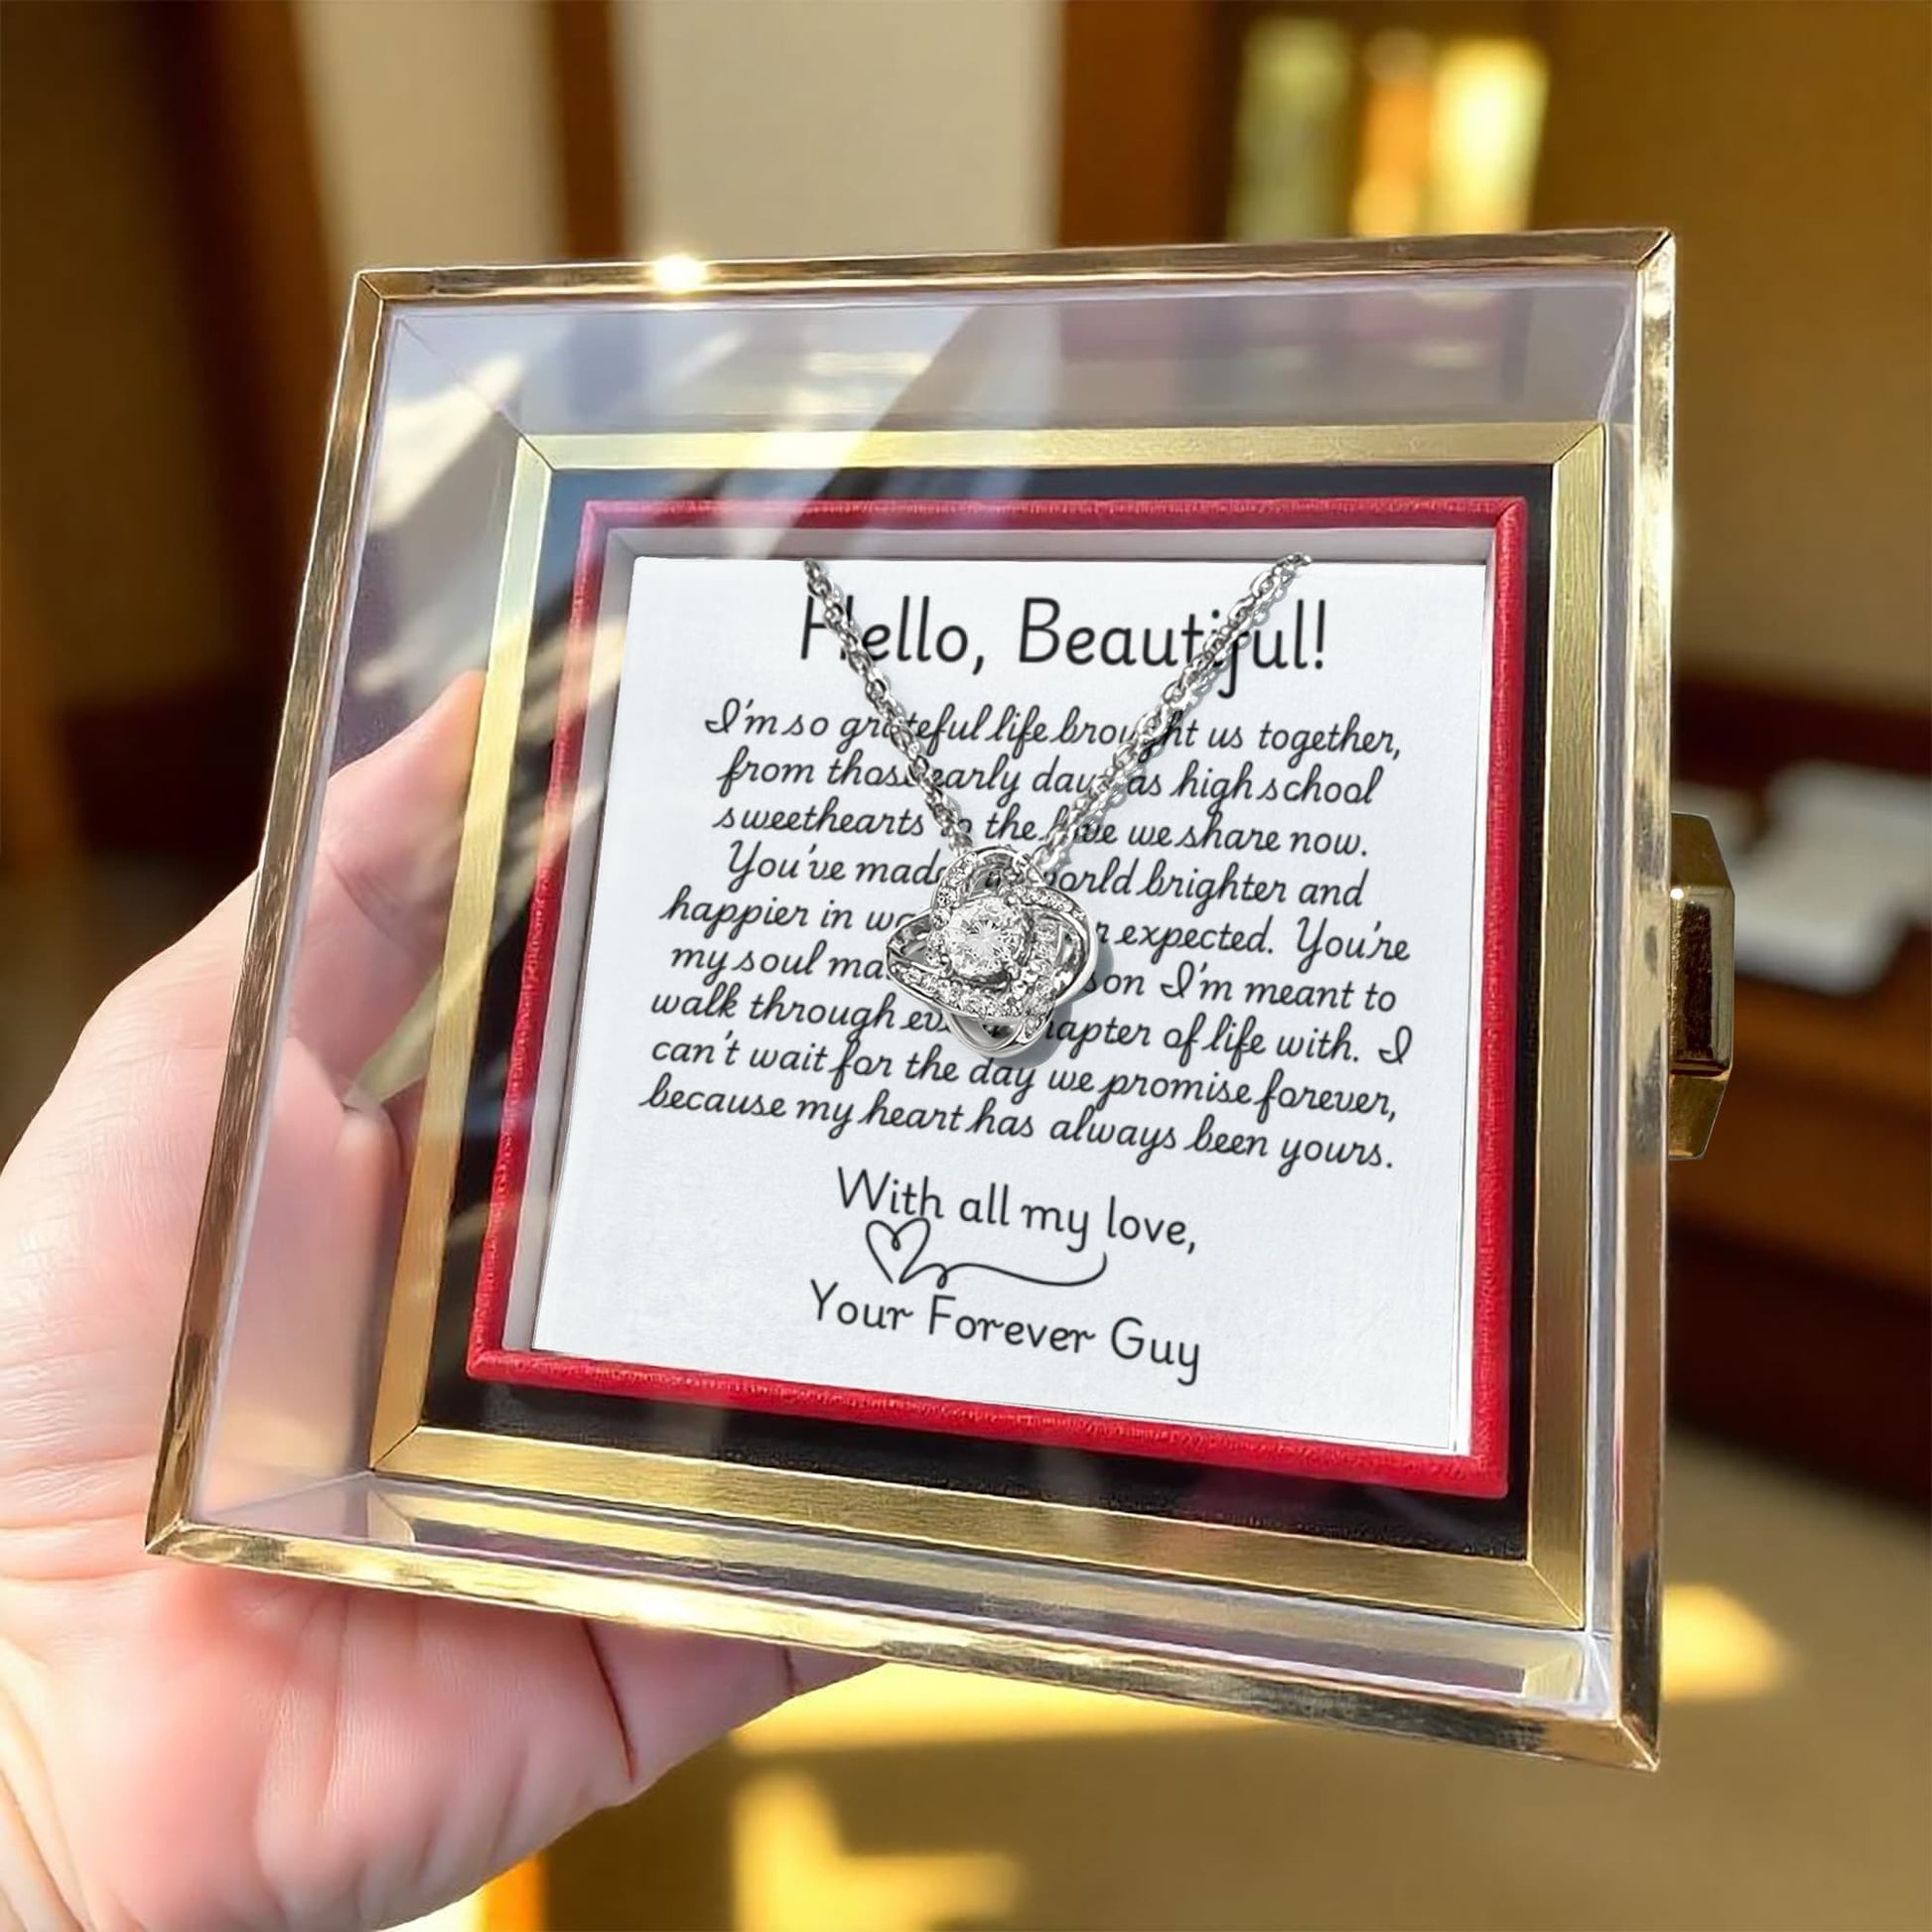 Hello, Beautiful!
I'm so grateful life brought us together,
from those early days as high school
sweethearts to the love we share now.
You've made world brighter and
happier in expected. You're
my soul I'm meant to
walk through every chapter of life with. I
can't wait for the day we promise forever,
because my heart has always been yours.
With all my love,
Your Forever Guy